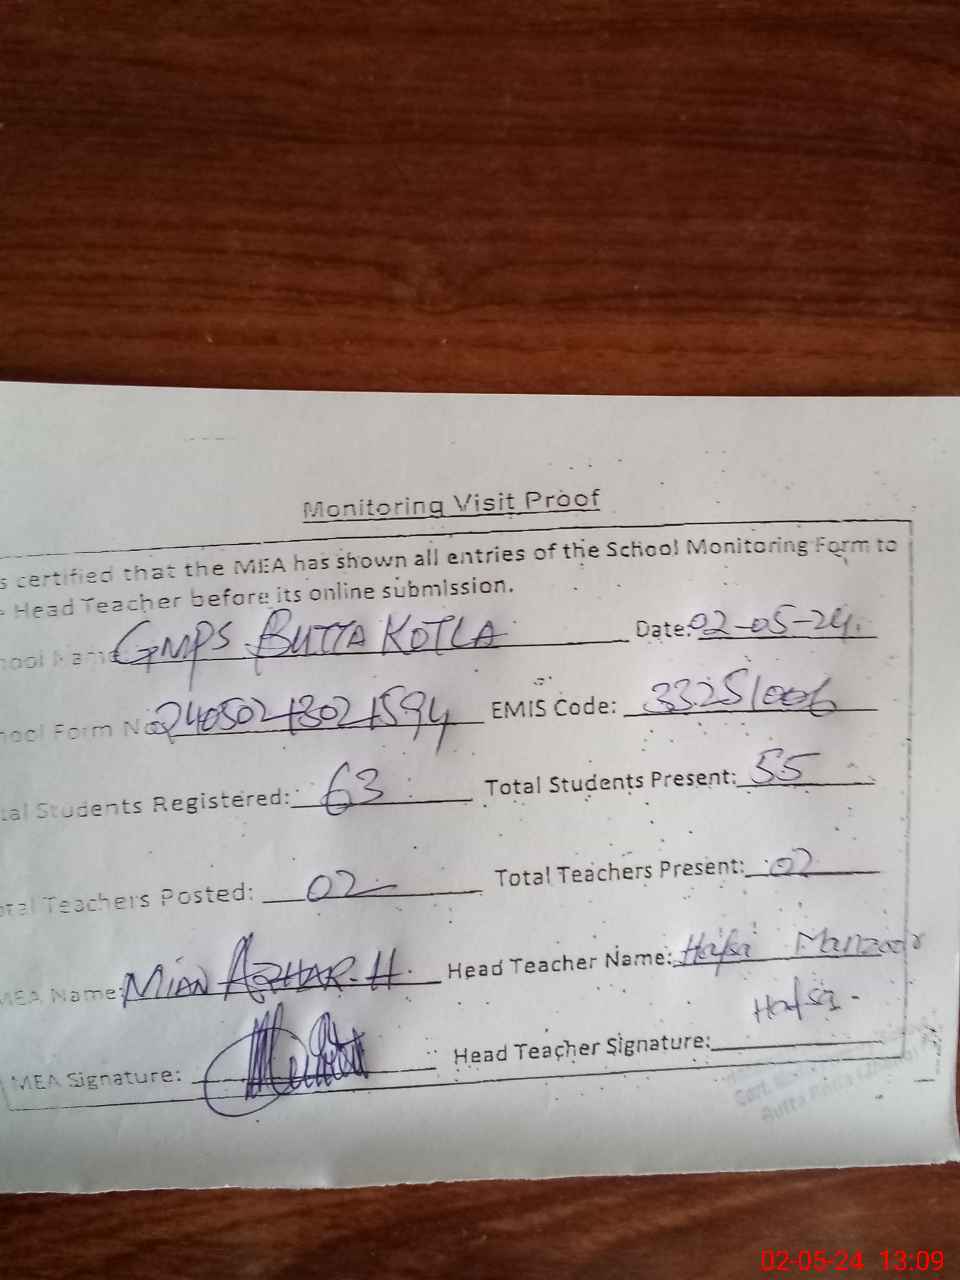 Monitoring Visit Proof
s certified that the MEA has shown all entries of the School Monitoring Form to
e Head Teacher before its online submission.
hool Name GMPS BUTTA KOTLA Date: 02-05-24.
hool Form No 24050213021594 EMIS Code: 33251006
tal Students Registered: 63 Total Students Present: 55
otal Teachers Posted: 02 Total Teachers Present: 02
MEA Name: MIAN AZHAR-H. Head Teacher Name: Hafsa Manzoor
Hafsa
MEA Signature: Head Teacher Signature:
Butta Kotla
02-05-24 13:09